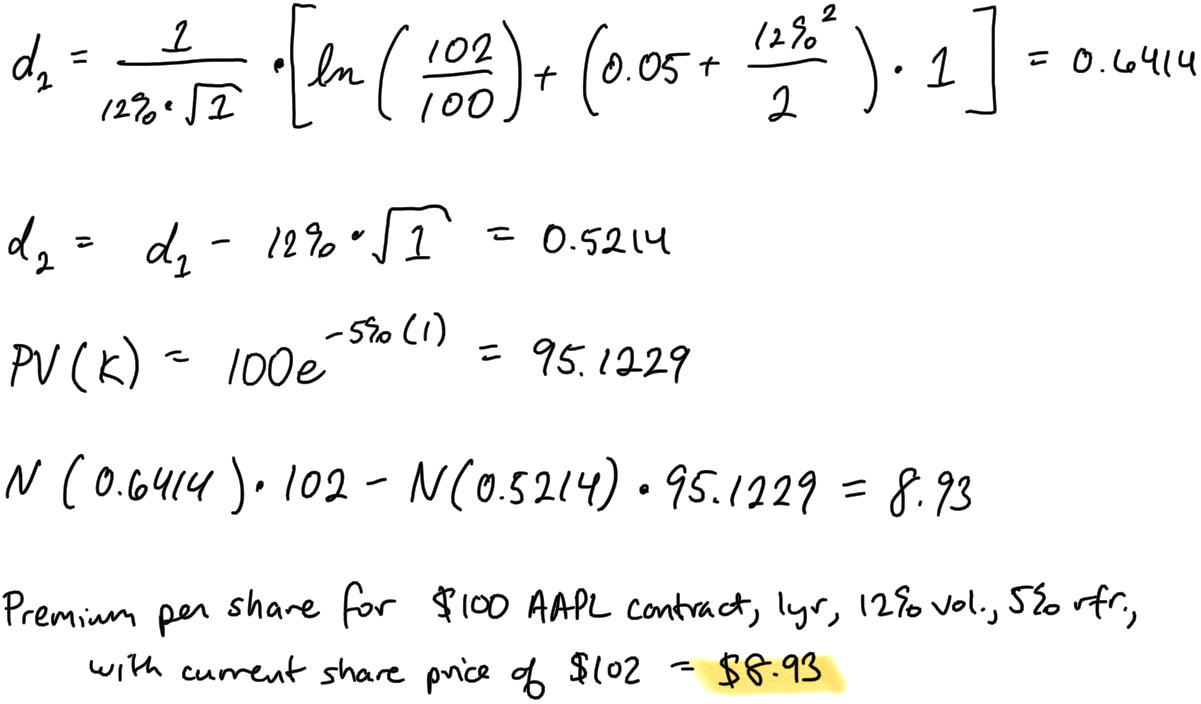 d₁ = 1/(12% · √1) · [ln(102/100) + (0.05 + 12%²/2) · 1] = 0.6414
d₂ = d₁ - 12% · √1 = 0.5214
PV(K) = 100e^(-5%(1)) = 95.1229
N(0.6414) · 102 - N(0.5214) · 95.1229 = 8.93
Premium per share for $100 AAPL contract, 1yr, 12% vol., 5% rfr.,
with current share price of $102 = $8.93